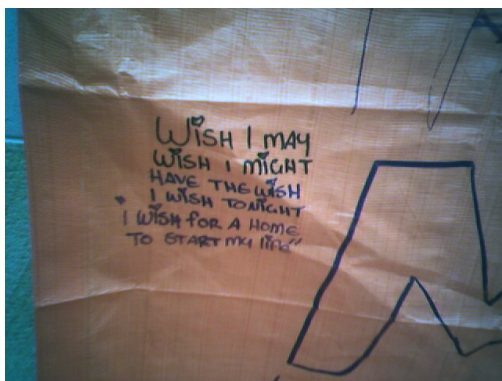 WISH I MAY
WISH I MIGHT
HAVE THE WISH
I WISH TONIGHT
"I WISH FOR A HOME
TO START MY LIFE"